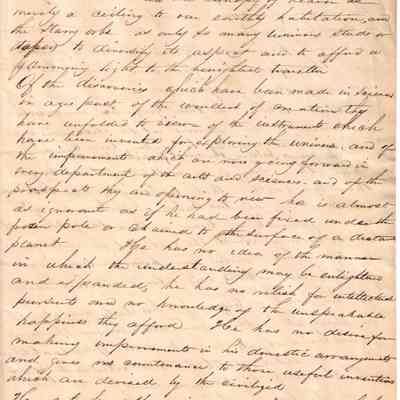 merely a ceiling to our earthly habitation, and
the starry orbs as only so many luminous studs or
tapers to diversify its aspect and to afford a
glimmering light to the benighted traveller
Of the discoveries which have been made in science
in ages past, of the wonders of creation they
have unfolded to view of the instruments which
have been invented for exploring the universe, and of
the improvements which are now going forward in
every department of the arts and sciences, and of the
prospects they are opening to view he is almost
as ignorant as if he had been fixed under the
polar pole or chained to the surface of a distant
planet He has no idea of the manner
in which the understanding may be enlightened
and expanded, he has no relish for intellectual
pursuits and no knowledge of the unspeakable
happiness they afford He has no desire for
making improvements in his domestic arrangements
and gives no countenance to those useful inventions
which are devised by the civilized